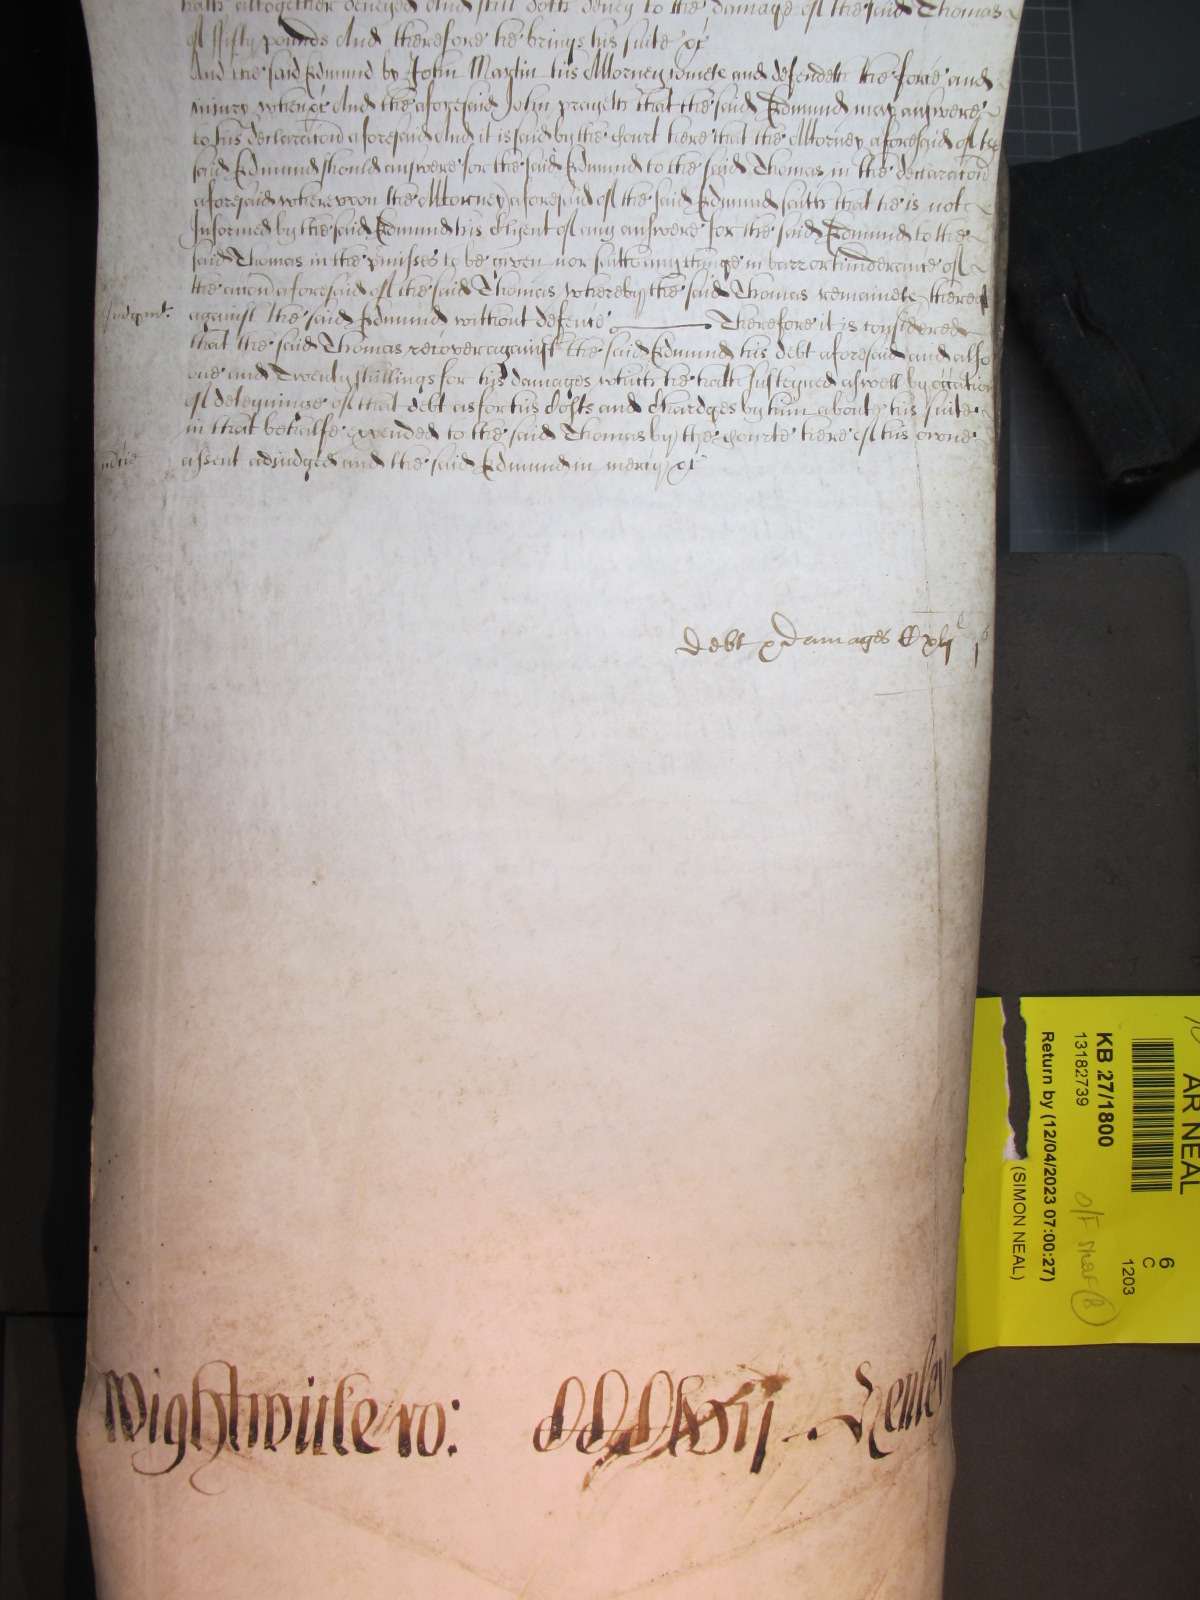 hath altogether denyed And still doth deny to the damage of the said Thomas
of ffifty pounds And therefore he brings his suite &c
And the said Edmund by John Martin his Attorney cometh and defendeth the force and
iniury when &c And the aforesaid John prayeth that the said Edmund may answere
to his declaracion aforesaid And it is said by the Court here that the Attorney aforesaid of the
said Edmund should answere for the said Edmund to the said Thomas in the declaracion
aforesaid whereupon the Attorney aforesaid of the said Edmund saith that he is not
Informed by the said Edmund his Clyent of any answere for the said Edmund to the
said Thomas in the pmisses to be given nor saith any thinge in barr or hinderance of
the accion aforesaid of the said Thomas whereby the said Thomas remaineth thereof
Judgmt: against the said Edmund without defence Therefore it is considered
that the said Thomas recover against the said Edmund his debt aforesaid and also
one and Twenty shillings for his damages which he hath susteyned aswell by occation
of deteyninge of that debt as for his Costs and Chardges by him about his suite
in that behalfe expended to the said Thomas by the Courte here of his owne
mcie assent adjudged and the said Edmund in mercy &c
Debt & Damages Cxlj l j s
Wightwicke ro: Henley
AR NEAL
KB 27/1800
13182739
Return by (12/04/2023 07:00:27)
(SIMON NEAL)
6
C
1203